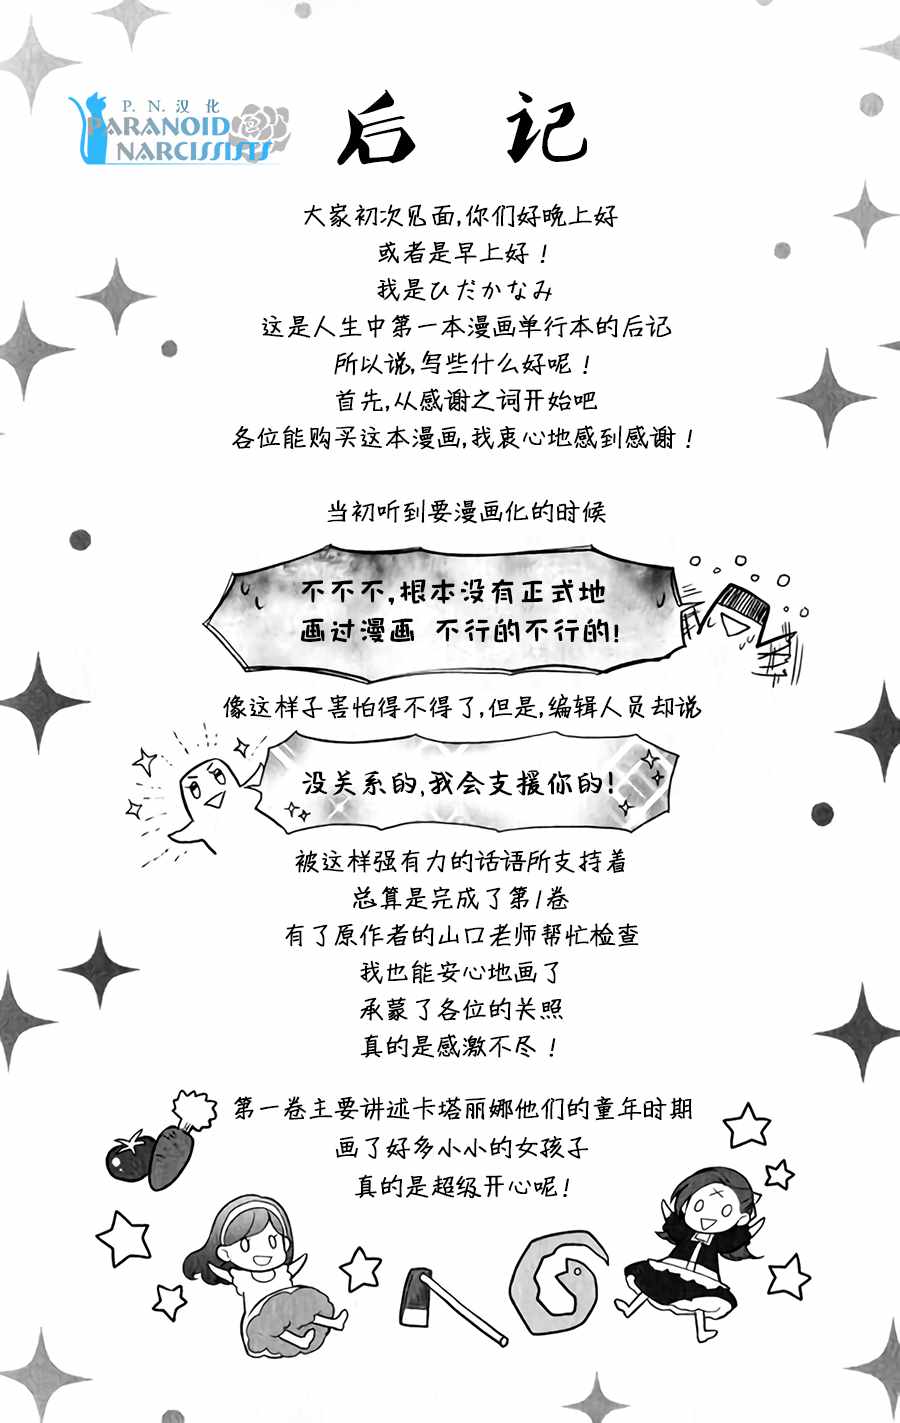 P. N. 汉化
PARANOID
NARCISSISTS
后记
大家初次见面,你们好晚上好
或者是早上好！
我是ひだかなみ
这是人生中第一本漫画单行本的后记
所以说,写些什么好呢！
首先,从感谢之词开始吧
各位能购买这本漫画,我衷心地感到感谢！
当初听到要漫画化的时候
不不不,根本没有正式地
画过漫画 不行的不行的!
像这样子害怕得不得了,但是,编辑人员却说
没关系的,我会支援你的!
被这样强有力的话语所支持着
总算是完成了第1卷
有了原作者的山口老师帮忙检查
我也能安心地画了
承蒙了各位的关照
真的是感激不尽！
第一卷主要讲述卡塔丽娜他们的童年时期
画了好多小小的女孩子
真的是超级开心呢!